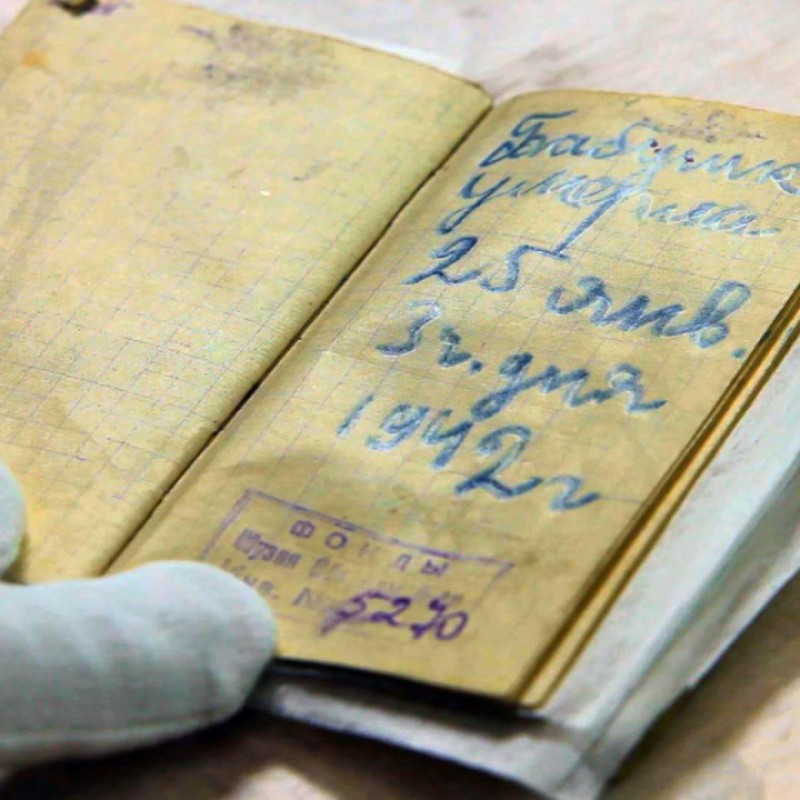 Бабушк
умерла
25 янв.
3ч. дня
1942г
ФОНДЫ
Музея
Инв. № 5270